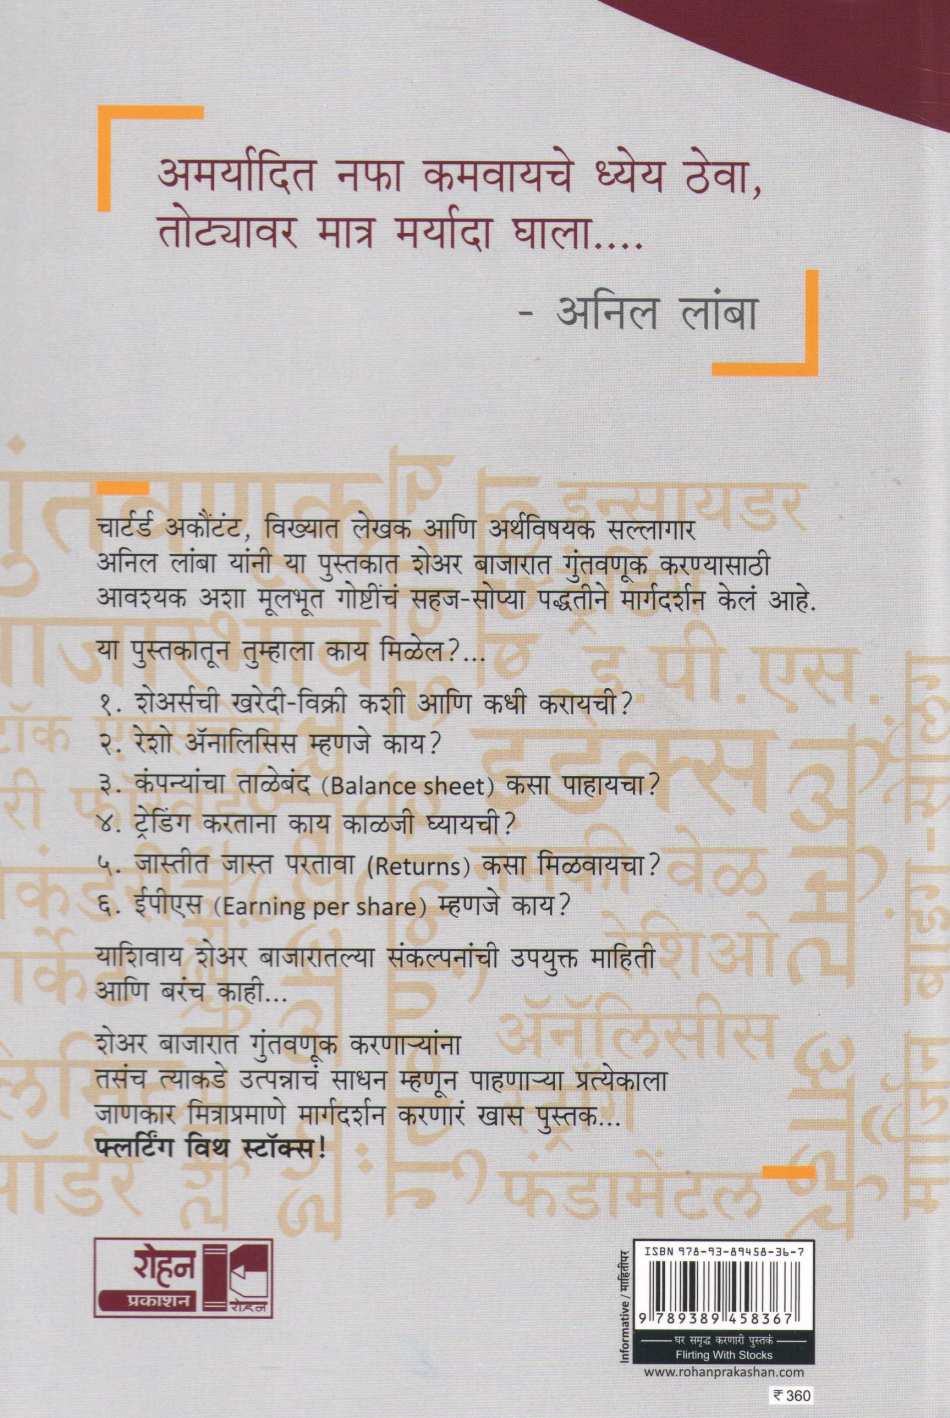 अमर्यादित नफा कमवायचे ध्येय ठेवा,
तोट्यावर मात्र मर्यादा घाला....
- अनिल लांबा
चार्टर्ड अकौंटंट, विख्यात लेखक आणि अर्थविषयक सल्लागार
अनिल लांबा यांनी या पुस्तकात शेअर बाजारात गुंतवणूक करण्यासाठी
आवश्यक अशा मूलभूत गोष्टींचं सहज-सोप्या पद्धतीने मार्गदर्शन केलं आहे.
या पुस्तकातून तुम्हाला काय मिळेल?...
१. शेअर्सची खरेदी-विक्री कशी आणि कधी करायची?
२. रेशो ॲनालिसिस म्हणजे काय?
३. कंपन्यांचा ताळेबंद (Balance sheet) कसा पाहायचा?
४. ट्रेडिंग करताना काय काळजी घ्यायची?
५. जास्तीत जास्त परतावा (Returns) कसा मिळवायचा?
६. ईपीएस (Earning per share) म्हणजे काय?
याशिवाय शेअर बाजारातल्या संकल्पनांची उपयुक्त माहिती
आणि बरंच काही...
शेअर बाजारात गुंतवणूक करणाऱ्यांना
तसंच त्याकडे उत्पन्नाचं साधन म्हणून पाहणाऱ्या प्रत्येकाला
जाणकार मित्राप्रमाणे मार्गदर्शन करणारं खास पुस्तक...
फ्लर्टिंग विथ स्टॉक्स!
गुंतवणूक
इन्सायडर
ई.पी.एस.
इंडेक्स
वेळ
रेशिओ
ॲनॅलिसीस
फंडामेंटल
रोहन
प्रकाशन
रोहन
Informative / माहितीपर
ISBN 978-93-89458-36-7
9 789389 458367
घर समृद्ध करणारी पुस्तकं
Flirting With Stocks
www.rohanprakashan.com
₹ 360